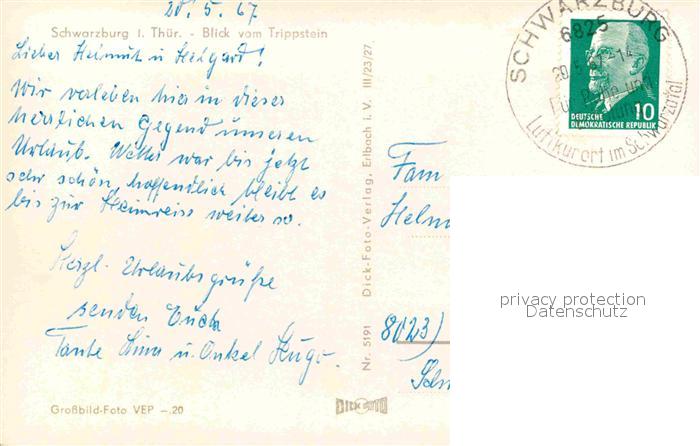 20. 5. 67
Schwarzburg i. Thür. - Blick vom Trippstein
Lieber Helmut u. Helgard!
Wir verleben hier in dieser
herrlichen Gegend unseren
Urlaub. Wetter war bis jetzt
sehr schön, hoffendlich bleibt es
bis zur Heimreise weiter so.
Herzl. Urlaubsgrüße
senden Euch
Tante Lina u. Onkel Hugo.
Großbild-Foto VEP -.20
Nr. 5191 Dick-Foto-Verlag, Erlbach i. V. III/23/27
DICK FOTO
SCHWARZBURG
6825
20.5.67-14
Für Ruhe und
Luftkurort im Schwarzatal
10
DEUTSCHE
DEMOKRATISCHE REPUBLIK
Fam
Helm
8023)
privacy protection
Datenschutz